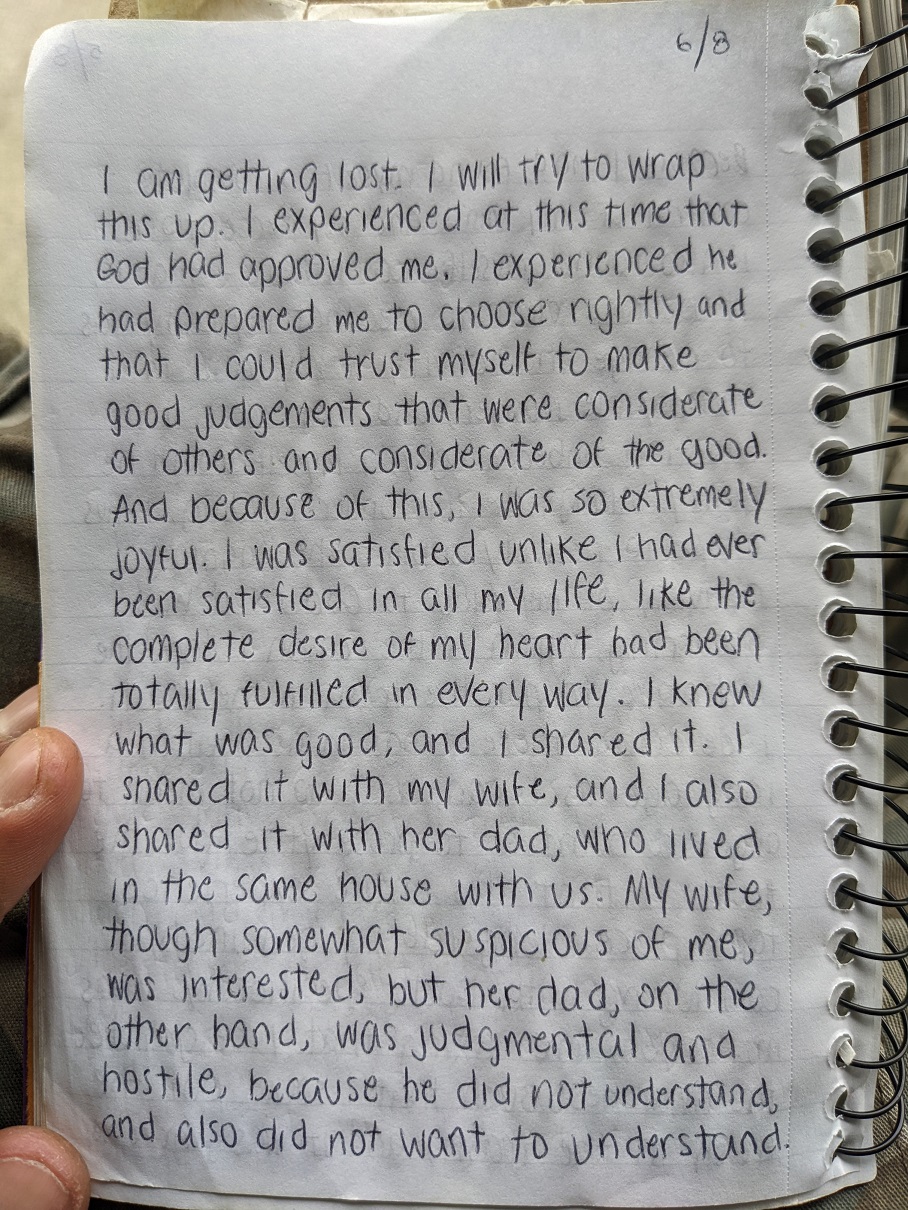 6/8
I am getting lost. I will try to wrap
this up. I experienced at this time that
God had approved me. I experienced he
had prepared me to choose rightly and
that I could trust myself to make
good judgements that were considerate
of others and considerate of the good.
And because of this, I was so extremely
joyful. I was satisfied unlike I had ever
been satisfied in all my life, like the
complete desire of my heart had been
totally fulfilled in every way. I knew
what was good, and I shared it. I
shared it with my wife, and I also
shared it with her dad, who lived
in the same house with us. My wife,
though somewhat suspicious of me,
was interested, but her dad, on the
other hand, was judgmental and
hostile, because he did not understand,
and also did not want to understand.